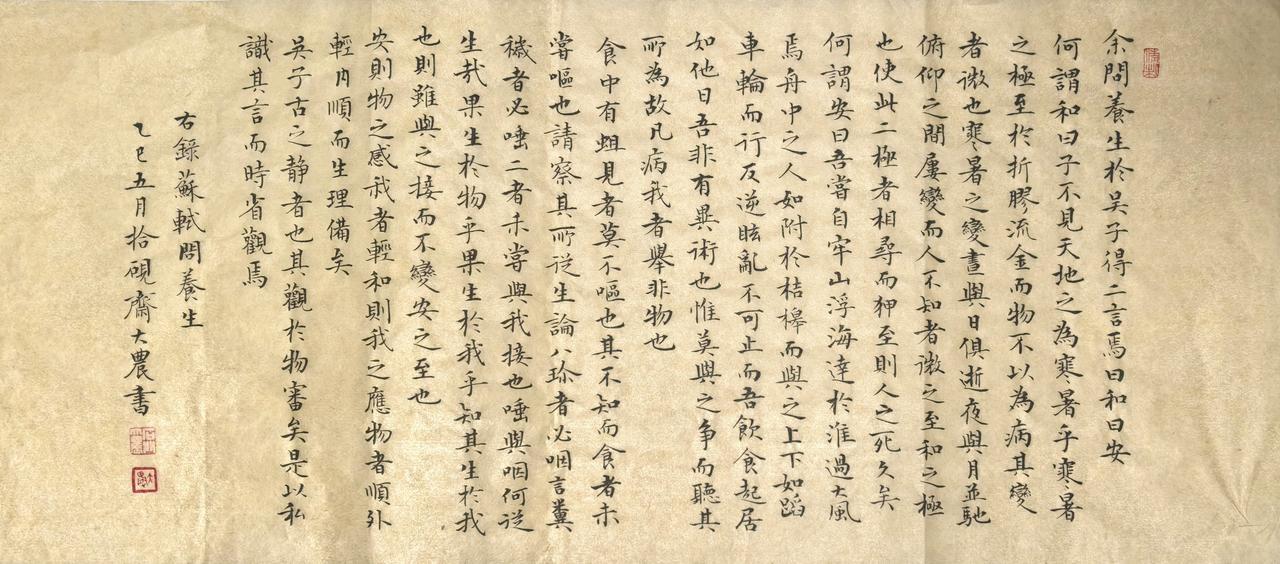 余問養生於吳子得二言焉曰和曰安
何謂和曰子不見天地之為寒暑乎寒暑
之極至於折膠流金而物不以為病其變
者微也寒暑之變晝與日俱逝夜與月並馳
俯仰之間屢變而人不知者微之至和之極
也使此二極者相尋而狎至則人之死久矣
何謂安曰吾嘗自牢山浮海達於淮過大風
焉舟中之人如附於桔槔而與之上下如蹈
車輪而行反逆眩亂不可止而吾飲食起居
如他日吾非有異術也惟莫與之爭而聽其
所為故凡病我者舉非物也
食中有蛆見者莫不嘔也其不知而食者未
嘗嘔也請察其所從生論八珍者必咽言糞
穢者必唾二者未嘗與我接也唾與咽何從
生哉果生於物乎果生於我乎知其生於我
也則雖與之接而不變安之至也
安則物之感我者輕和則我之應物者順外
輕內順而生理備矣
吳子古之靜者也其觀於物審矣是以私
識其言而時省觀焉
右錄蘇軾問養生
乙巳五月拾硯齋大農書